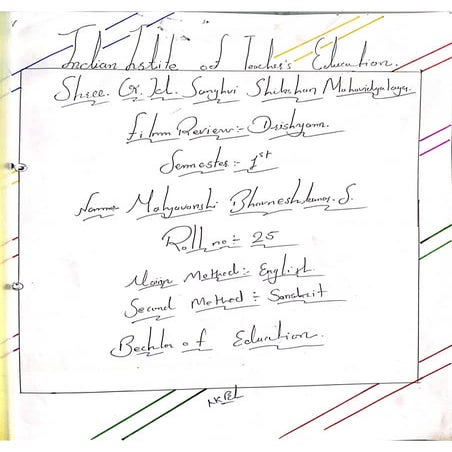 Indian Instite of Teacher's Education.
Shree. G. H. Sanghvi Shikshan Mahavidyalaya.
Film Review:- Drishyam.
Semester:- 1st
Name:- Malyavanshi Bhavneshkumar. S.
Roll no:- 25
Main Method:- English
Second Method:- Sanskrit
Bechlor of Education.